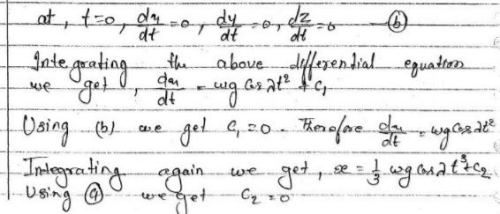 at, t=0, dx/dt=0, dy/dt=0, dz/dt=0 — (b)
Integrating the above differential equation
we get, dx/dt = wg cos λt² + c₁
Using (b) we get c₁=0. Therefore dx/dt = wg cos λt²
Integrating again we get, x = 1/3 wg cos λ t³+c₂
Using (a) we get c₂=0